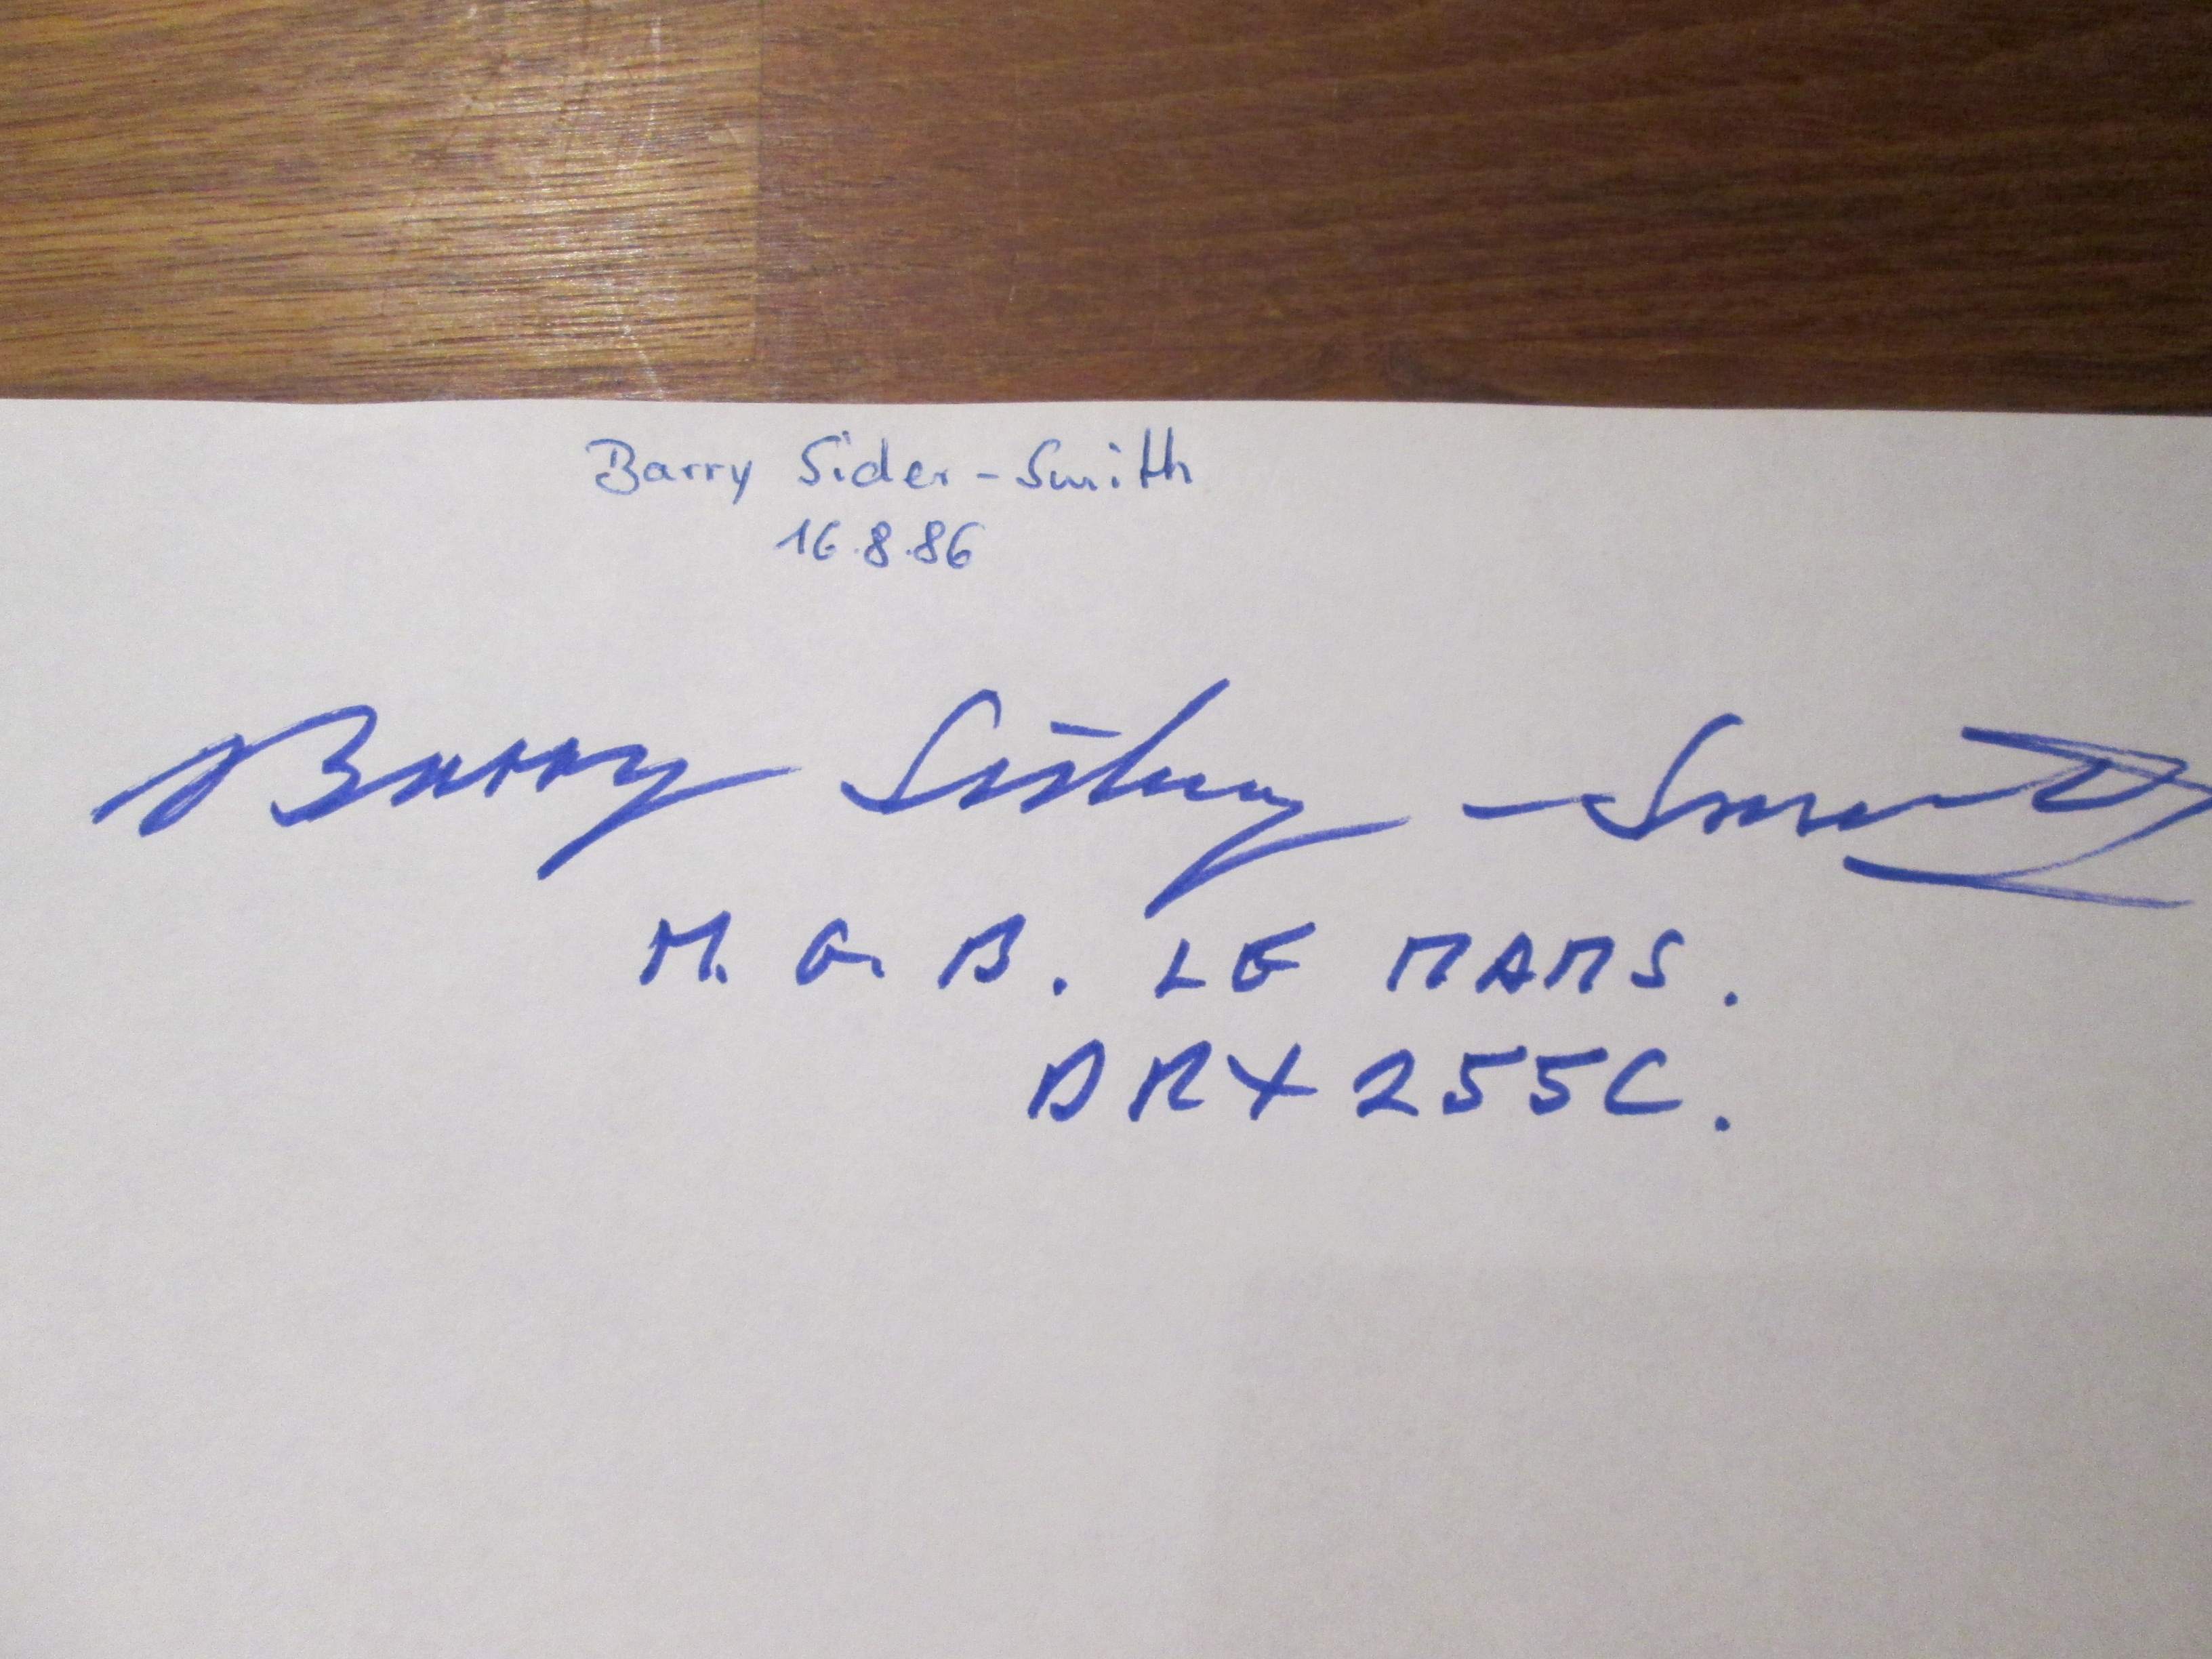 Barry Sider-Smith
16.8.86
Barry Sidney-Smith
M.G.B. LE MANS.
DRX 255C.